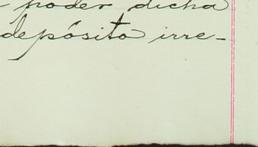 - poder dicha
depósito irre-